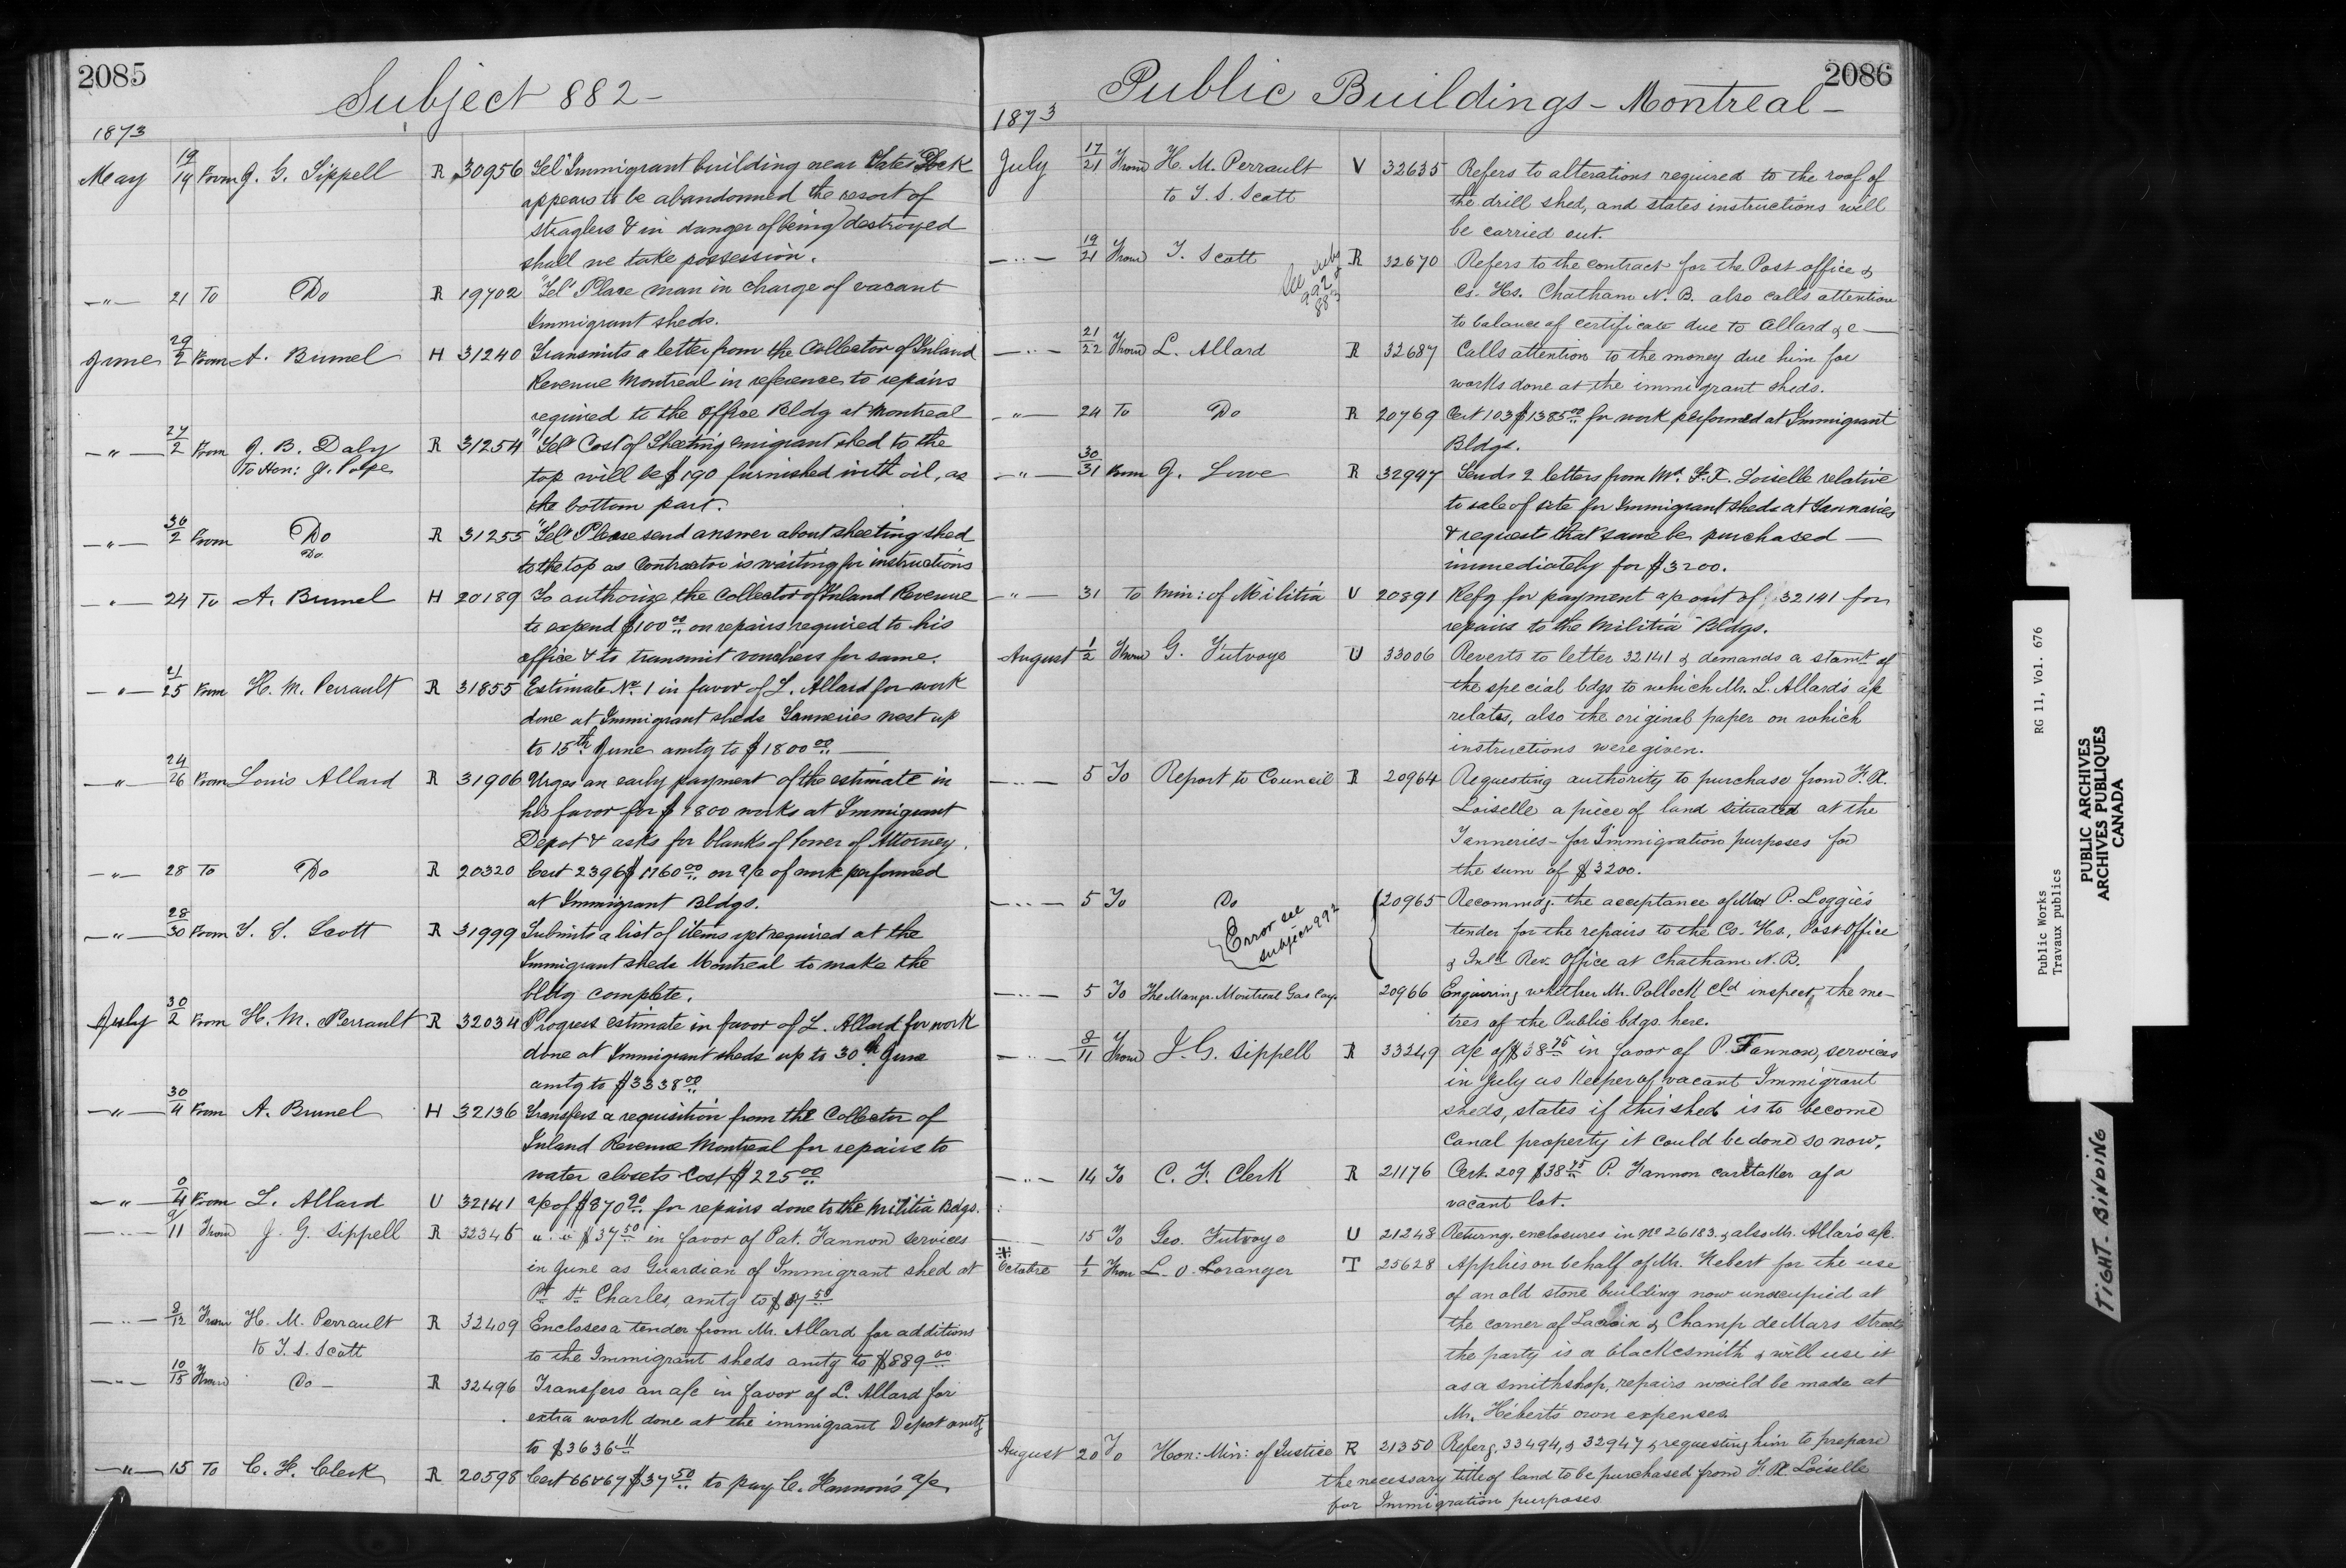 2085
Subject 882 -
1873
May 19/19 From J. G. Sippell R 30956 "Tel" Immigrant building near Gates Dock
appears to be abandonned the resort of
straglers & in danger of being destroyed
shall we take possession.
—"— 21 To Do R 19702 "Tel" Place man in charge of vacant
Immigrant sheds.
June 29/2 From A. Brunel H 31240 Transmits a letter from the Collector of Inland
Revenue Montreal in reference to repairs
required to the Office Bldg at Montreal
—"— 27/2 From J. B. Daly R 31254 "Tel" Cost of Sheeting emigrant shed to the
To Hon: J. Pope top will be $190 furnished with oil, as
the bottom part.
—"— 30/2 From Do R 31255 "Tel" Please send answer about sheeting shed
Do to the top as Contractor is waiting for instructions
—"— 24 To A. Brunel H 20189 To authorize the Collector of Inland Revenue
to expend $100 00 on repairs required to his
office & to transmit vouchers for same.
—"— 21/25 From H. M. Perrault R 31855 Estimate No 1 in favor of L. Allard for work
done at Immigrant sheds Tanneries west up
to 15th June amtg to $1800 00 —
—"— 24/26 From Louis Allard R 31906 Urges an early payment of the estimate in
his favor for $1800 works at Immigrant
Depot & asks for blanks of Power of Attorney.
—"— 28 To Do R 20320 Cert 2396 $1760 00 on a/c of work performed
at Immigrant Bldgs.
—"— 28/30 From T. S. Scott R 31999 Submits a list of items yet required at the
Immigrant sheds Montreal to make the
bldg complete.
July 30/2 From H. M. Perrault R 32034 Progress estimate in favor of L. Allard for work
done at Immigrant sheds up to 30th June
amtg to $3338 00
—"— 30/4 From A. Brunel H 32136 Transfers a requisition from the Collector of
Inland Revenue Montreal for repairs to
water closets Cost $225 00
—"— 0/4 From L. Allard U 32141 a/c of $870 90 for repairs done to the Militia Bdgs.
—"— 9/11 From J. G. Sippell R 32345 " " $37 50 in favor of Pat. Fannon services
in June as Guardian of Immigrant shed at
Pt St Charles, amtg to $37 50
—"— 8/12 From H. M. Perrault R 32409 Encloses a tender from Mr. Allard for additions
to T. S. Scott to the Immigrant sheds amtg to $889 00
—"— 10/15 From Do - R 32496 Transfers an a/c in favor of L. Allard for
extra work done at the immigrant Depot amtg
to $3636 11
—"— 15 To C. F. Clerk R 20598 Cert 66 & 67 $37 50 to pay C. Hannon's a/c
2086
Public Buildings - Montreal -
1873
July 17/21 From H. M. Perrault V 32635 Refers to alterations required to the roof of
to T. S. Scott the drill shed, and states instructions will
be carried out.
—"— 19/21 From T. Scott R 32670 Refers to the contract for the Post office &
See subj 992 & 883
Cs. Hs. Chatham N. B. also calls attention
to balance of certificate due to Allard &c —
—"— 21/22 From L. Allard R 32687 Calls attention to the money due him for
works done at the immigrant sheds.
—"— 24 To Do R 20769 Cert 103 $1385 00 for work performed at Immigrant
Bldgs.
—"— 30/31 From J. Lowe R 32947 Sends 2 letters from Mr. F. X. Loiselle relative
to sale of site for Immigrant sheds at Tanneries
& requests that same be purchased —
immediately for $3200.
—"— 31 To Min: of Militia U 20891 Refg for payment a/c out of 32141 for
repairs to the Militia Bldgs.
August 1/2 From G. Futvoye U 33006 Reverts to letter 32141 & demands a stamt of
the special bdgs to which Mr. L. Allard's a/c
relates, also the original paper on which
instructions were given.
—"— 5 To Report to Council R 20964 Requesting authority to purchase from F. X.
Loiselle a piece of land situated at the
Tanneries - for Immigration purposes for
the sum of $3200.
—"— 5 To Do 20965 Recommdg. the acceptance of P. Loggie's
Error see subject 992
tender for the repairs to the Cs. Hs., Post Office
& Inld Rev. Office at Chatham N. B.
—"— 5 To The Mangr. Montreal Gas Coy. 20966 Enquiring whether Mr. Pollock cld inspect, the me-
tres of the Public bdgs here.
—"— 8/11 From J. G. Sippell R 33249 a/c of $38 75 in favor of P. Fannon, services
in July as Keeper of vacant Immigrant
sheds, states if this shed is to become
Canal property it could be done so now.
—"— 14 To C. F. Clerk R 21176 Cert. 209 $38 75 P. Fannon caretaker of a
vacant lot.
15 To Geo. Futvoye U 21248 Returng. enclosures in No 26183. & also Mr. Allar's a/c.
Octobre 1/2 From L. O. Loranger T 25628 Applies on behalf of Mr. Hebert for the use
of an old stone building now unoccupied at
the corner of Lacroix & Champ de Mars streets
the party is a blackesmith & will use it
as a smithshop, repairs would be made at
Mr. Hébert's own expenses.
August 20 To Hon: Min: of Justice R 21350 Referg, 33494, & 32947 & requesting him to prepare
the necessary title of land to be purchased from F. X. Loiselle
for Immigration purposes
Public Works RG 11, Vol. 676
Travaux publics
PUBLIC ARCHIVES
ARCHIVES PUBLIQUES
CANADA
TIGHT BINDING